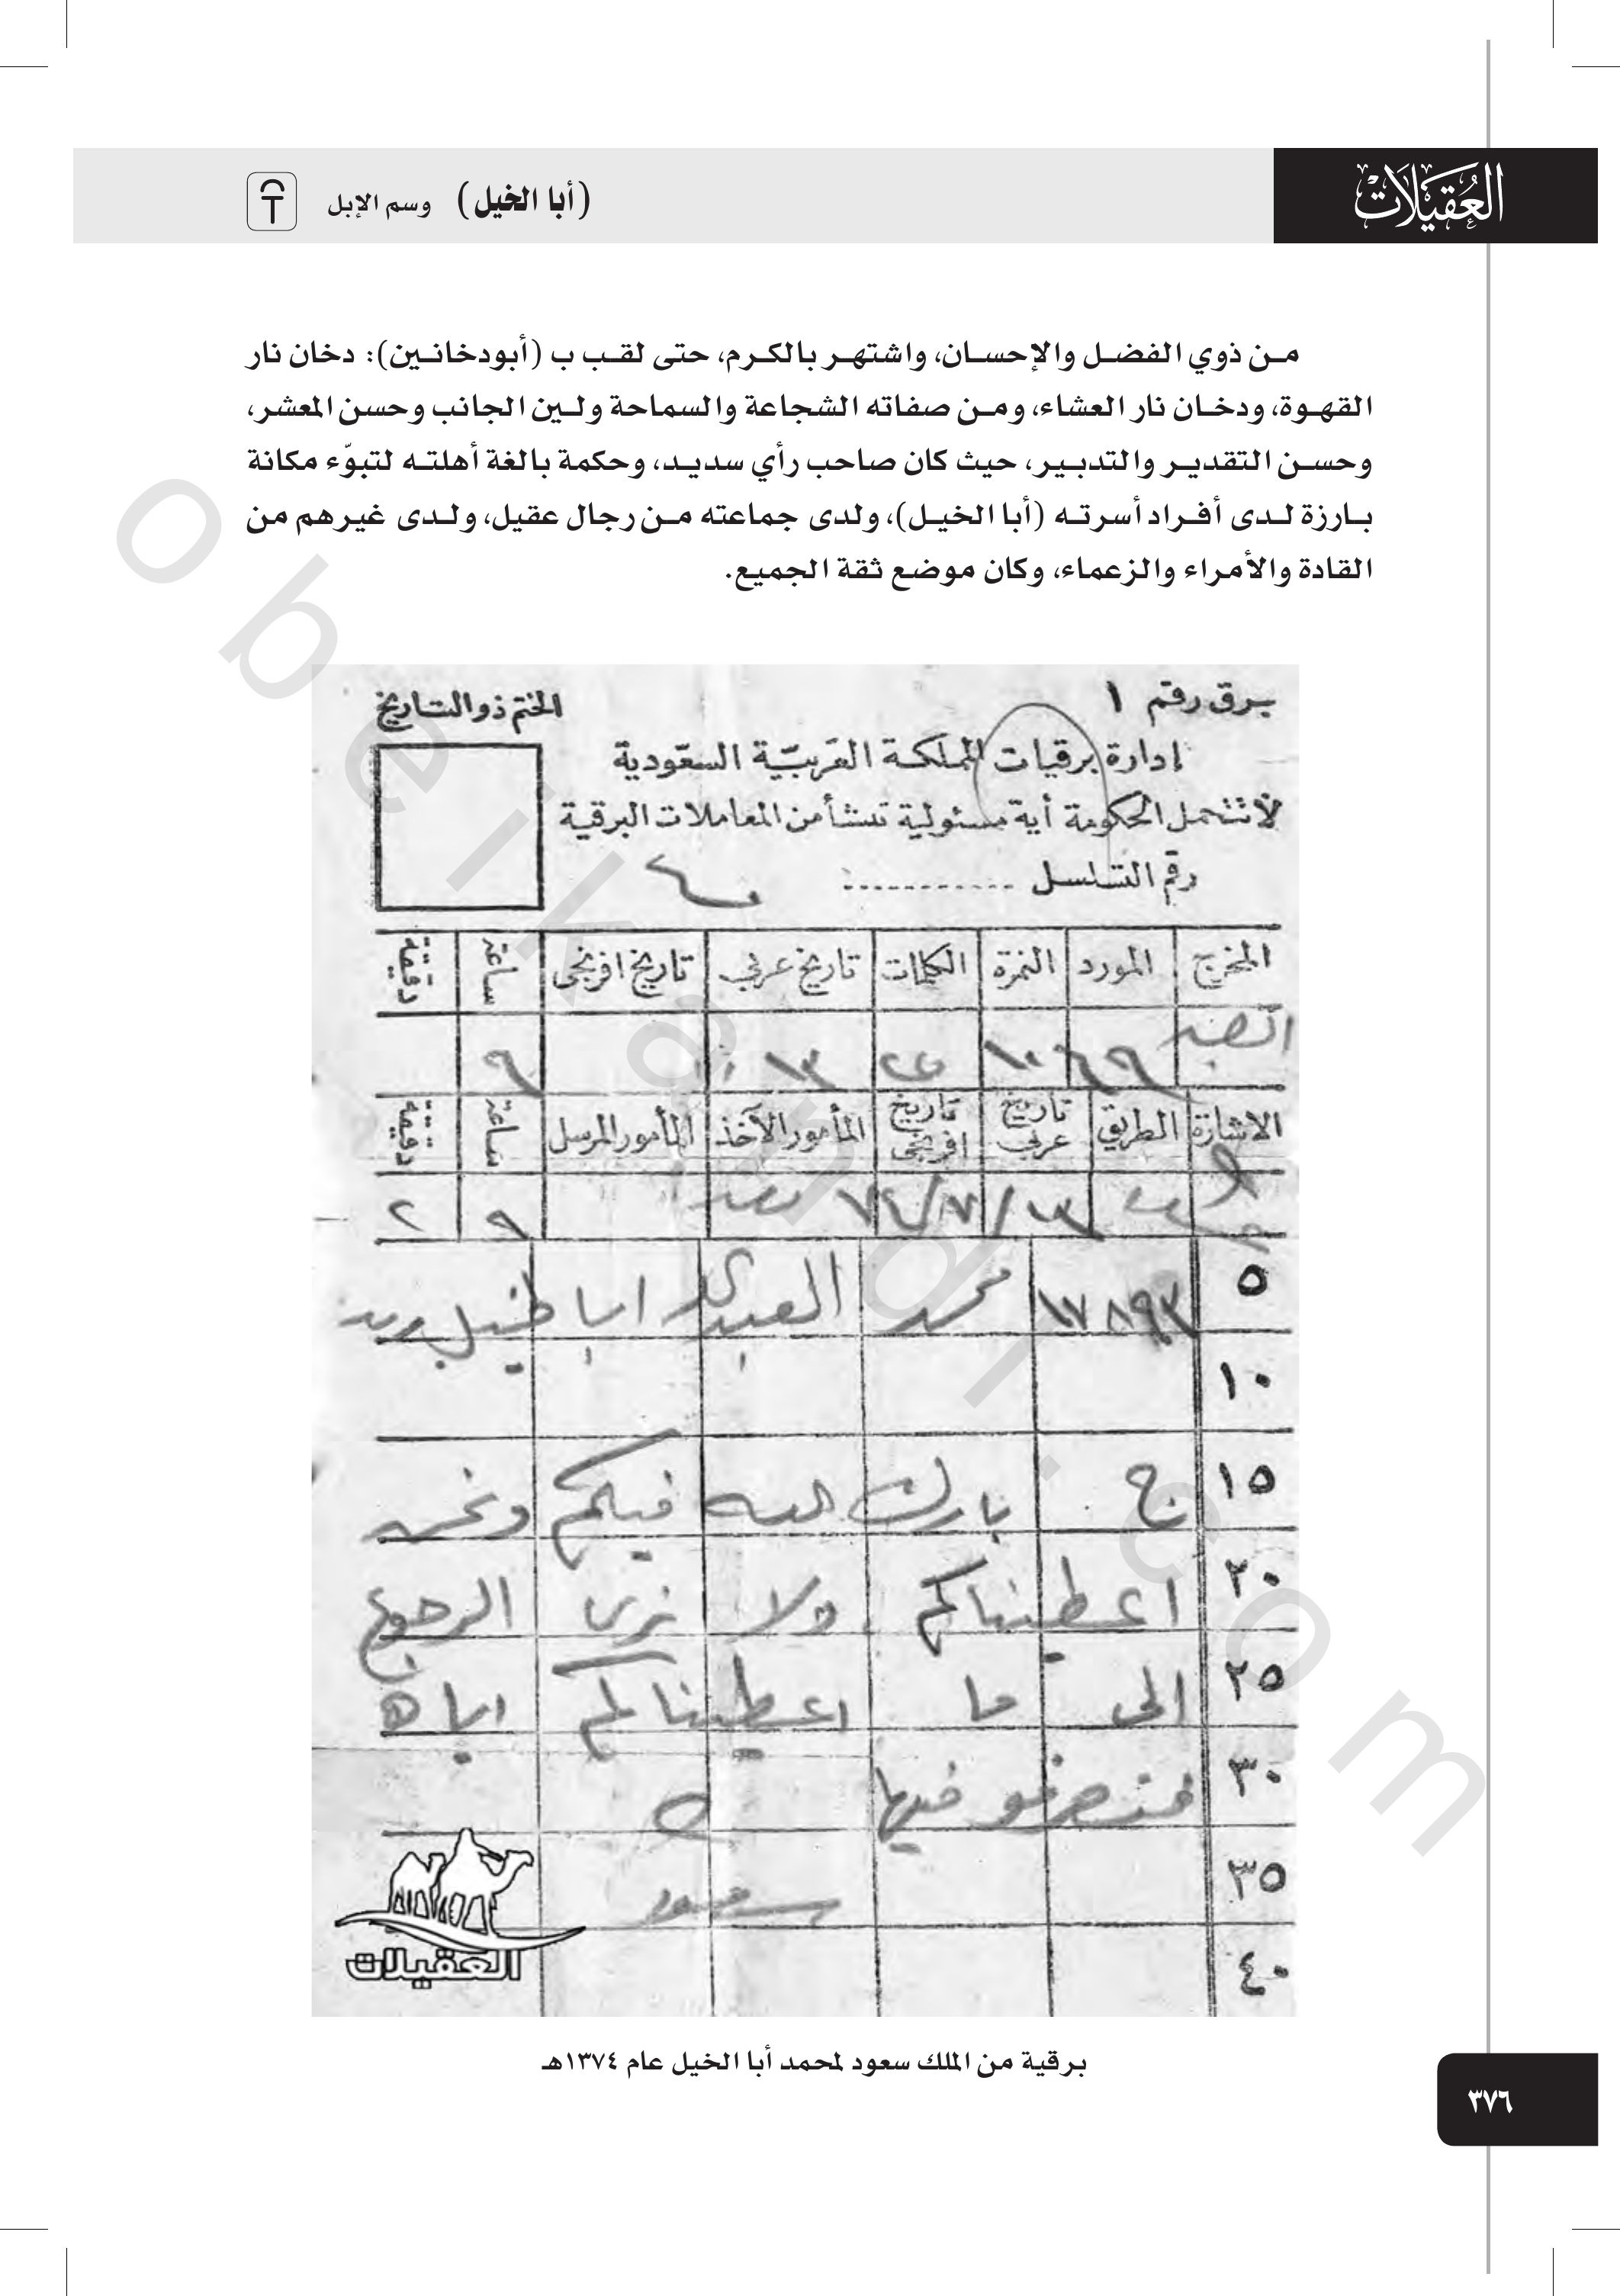 العقيلات
(أبا الخيل) وسم الإبل
من ذوي الفضل والإحسان، واشتهر بالكرم، حتى لقب ب (أبودخانين): دخان نار
القهوة، ودخان نار العشاء، ومن صفاته الشجاعة والسماحة ولين الجانب وحسن المعشر،
وحسن التقدير والتدبير، حيث كان صاحب رأي سديد، وحكمة بالغة أهلته لتبوّء مكانة
بارزة لدى أفراد أسرته (أبا الخيل)، ولدى جماعته من رجال عقيل، ولدى غيرهم من
القادة والأمراء والزعماء، وكان موضع ثقة الجميع.
برق رقم ١
الختم ذو التاريخ
إدارة برقيات المملكة العربية السعودية
لا تتحمل الحكومة أية مسئولية تنشأ من المعاملات البرقية
رقم التسلسل ............
المخرج المورد النمرة الكلمات تاريخ عربي تاريخ افرنجى ساعة دقيقة
١٣ ٩
الاشارة الطريق تاريخ عربي تاريخ افرنجى المأمور الآخذ المأمور المرسل ساعة دقيقة
١٣/٧/٧٤ ٩ ٢
٥ ١٧٨٩٣ محمد العبدالله ابا خيل
١٠
١٥ ج بارك الله فيكم ونحن
٢٠ اعطيناكم ولا نرى الرجوع
٢٥ الى ما اعطيناكم اياه
٣٠ فتصرفو فيها
٣٥ سعود
٤٠
العقيلات
برقية من الملك سعود لمحمد أبا الخيل عام ١٣٧٤هـ
٣٧٦
obeikandi.com